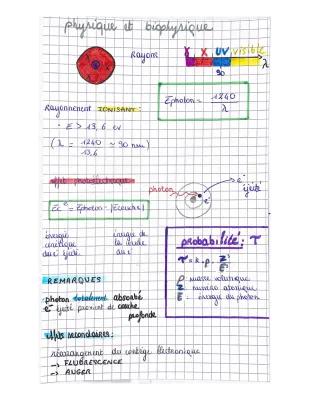 physique et biophysique
Rayons γ X UV visible
90 λ
Ephoton = 1240
λ
Rayonnement IONISANT :
· E > 13,6 eV
(λ = 1240 ~ 90 nm)
13,6
effet photoélectrique
photon
e⁻ éjecté
e⁻
Ec e⁻ = Ephoton - |Ecouche|
énergie
cinétique
de l' e⁻ éjecté
énergie de
la couche
probabilité : τ
τ = k . ρ . Z³
E³
ρ : masse volumique
Z : numéro atomique
E : énergie du photon
REMARQUES
photon totalement absorbé
e⁻ éjecté provient de couche
profonde
effets secondaires :
réarrangement du cortège électronique
→ FLUORESCENCE
→ AUGER